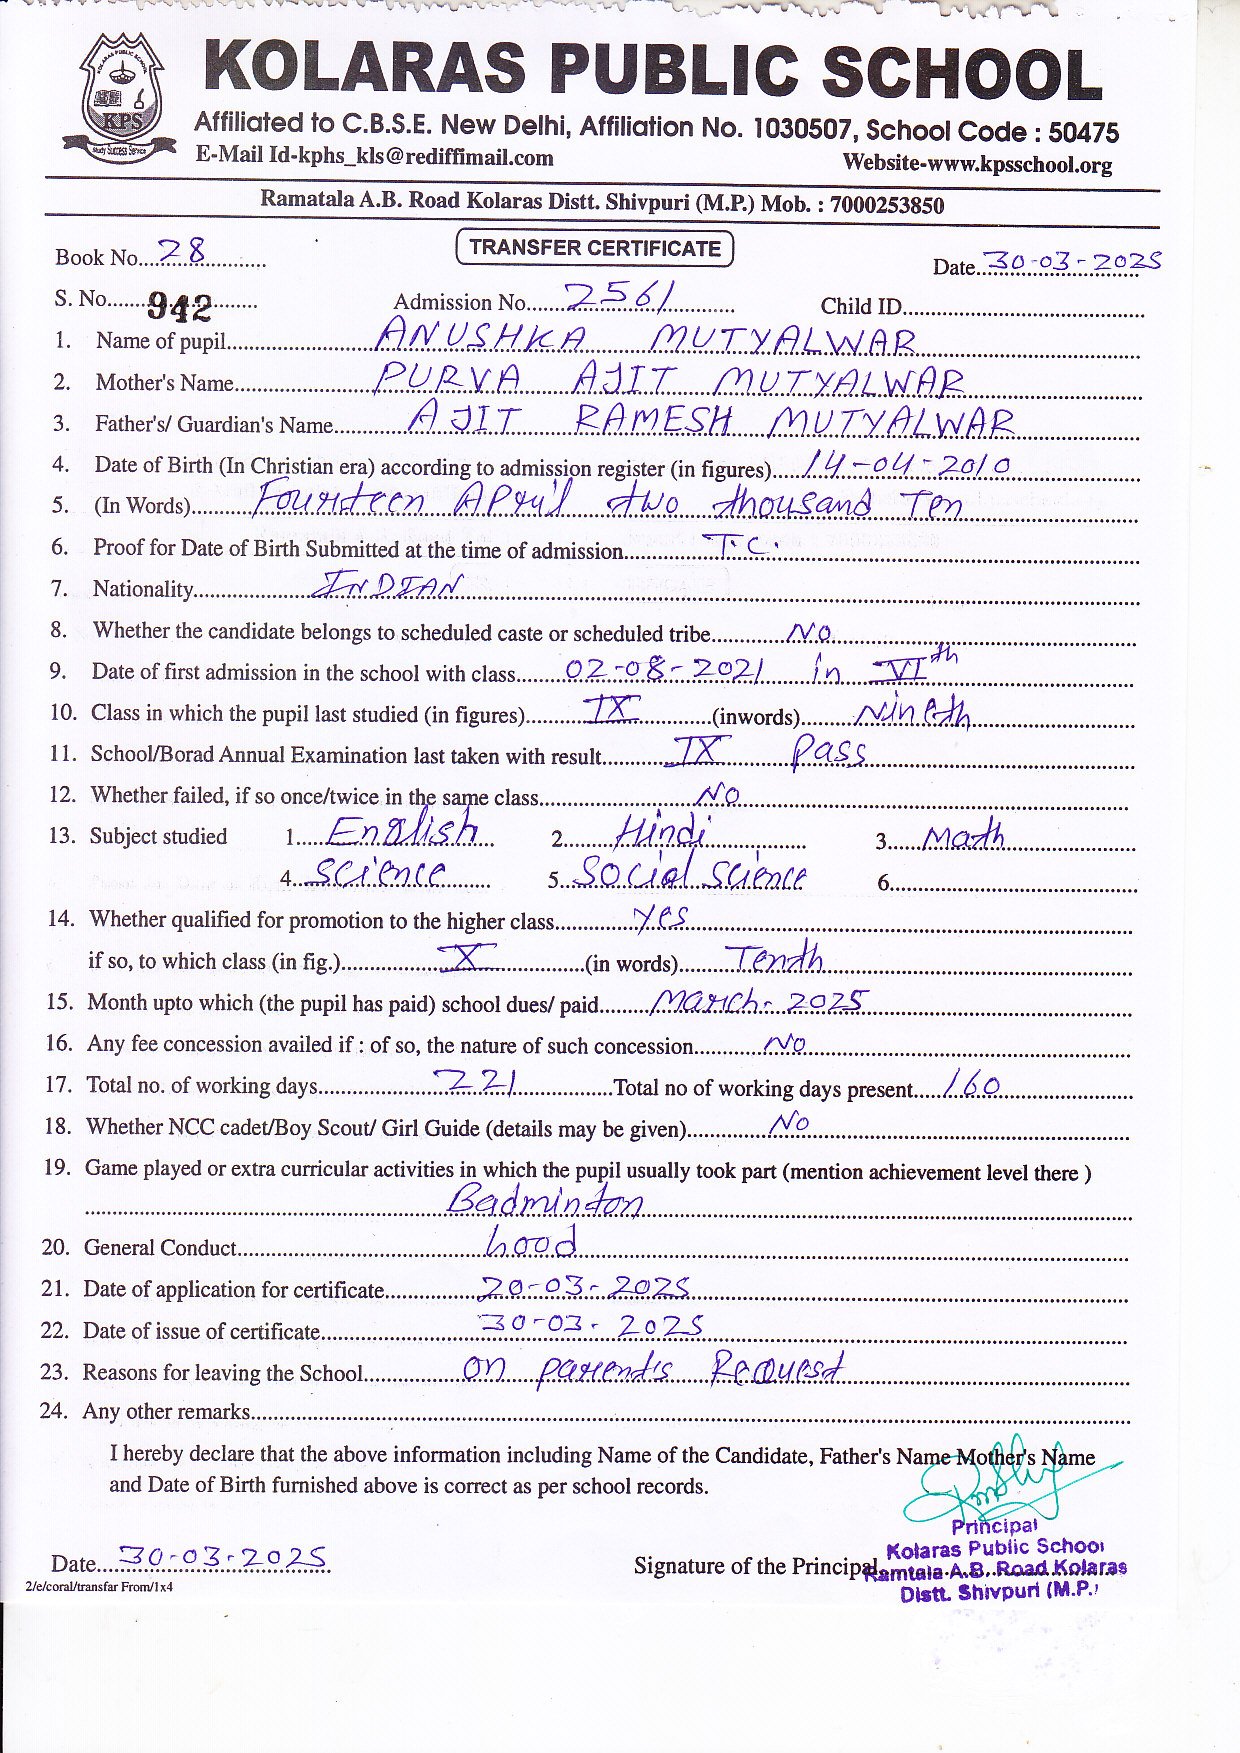 KOLARAS PUBLIC SCHOOL
Affiliated to C.B.S.E. New Delhi, Affiliation No. 1030507, School Code : 50475
E-Mail Id-kphs_kls@rediffimail.com Website-www.kpsschool.org
KPS
Ramatala A.B. Road Kolaras Distt. Shivpuri (M.P.) Mob. : 7000253850
TRANSFER CERTIFICATE
Book No. 28 Date. 30-03-2025
S. No. 942 Admission No. 2561 Child ID
1. Name of pupil ANUSHKA MUTYALWAR
2. Mother's Name PURVA AJIT MUTYALWAR
3. Father's/ Guardian's Name AJIT RAMESH MUTYALWAR
4. Date of Birth (In Christian era) according to admission register (in figures) 14-04-2010
5. (In Words) Fourteen April two thousand Ten
6. Proof for Date of Birth Submitted at the time of admission T.C.
7. Nationality INDIAN
8. Whether the candidate belongs to scheduled caste or scheduled tribe NO
9. Date of first admission in the school with class 02-08-2021 in VIth
10. Class in which the pupil last studied (in figures) IX (inwords) Nineth
11. School/Borad Annual Examination last taken with result IX Pass
12. Whether failed, if so once/twice in the same class NO
13. Subject studied 1. English 2. Hindi 3. Math
4. Science 5. Social Science 6.
14. Whether qualified for promotion to the higher class yes
if so, to which class (in fig.) X (in words) Tenth
15. Month upto which (the pupil has paid) school dues/ paid March-2025
16. Any fee concession availed if : of so, the nature of such concession No
17. Total no. of working days 221 Total no of working days present 160
18. Whether NCC cadet/Boy Scout/ Girl Guide (details may be given) No
19. Game played or extra curricular activities in which the pupil usually took part (mention achievement level there )
Badminton
20. General Conduct Good
21. Date of application for certificate 20-03-2025
22. Date of issue of certificate 30-03-2025
23. Reasons for leaving the School on parent's Request
24. Any other remarks
I hereby declare that the above information including Name of the Candidate, Father's Name Mother's Name
and Date of Birth furnished above is correct as per school records.
Principal
Kolaras Public School
Date 30-03-2025 Signature of the Principal Ramtala A.B. Road Kolaras
2/e/coral/transfar From/1x4 Distt. Shivpuri (M.P.)